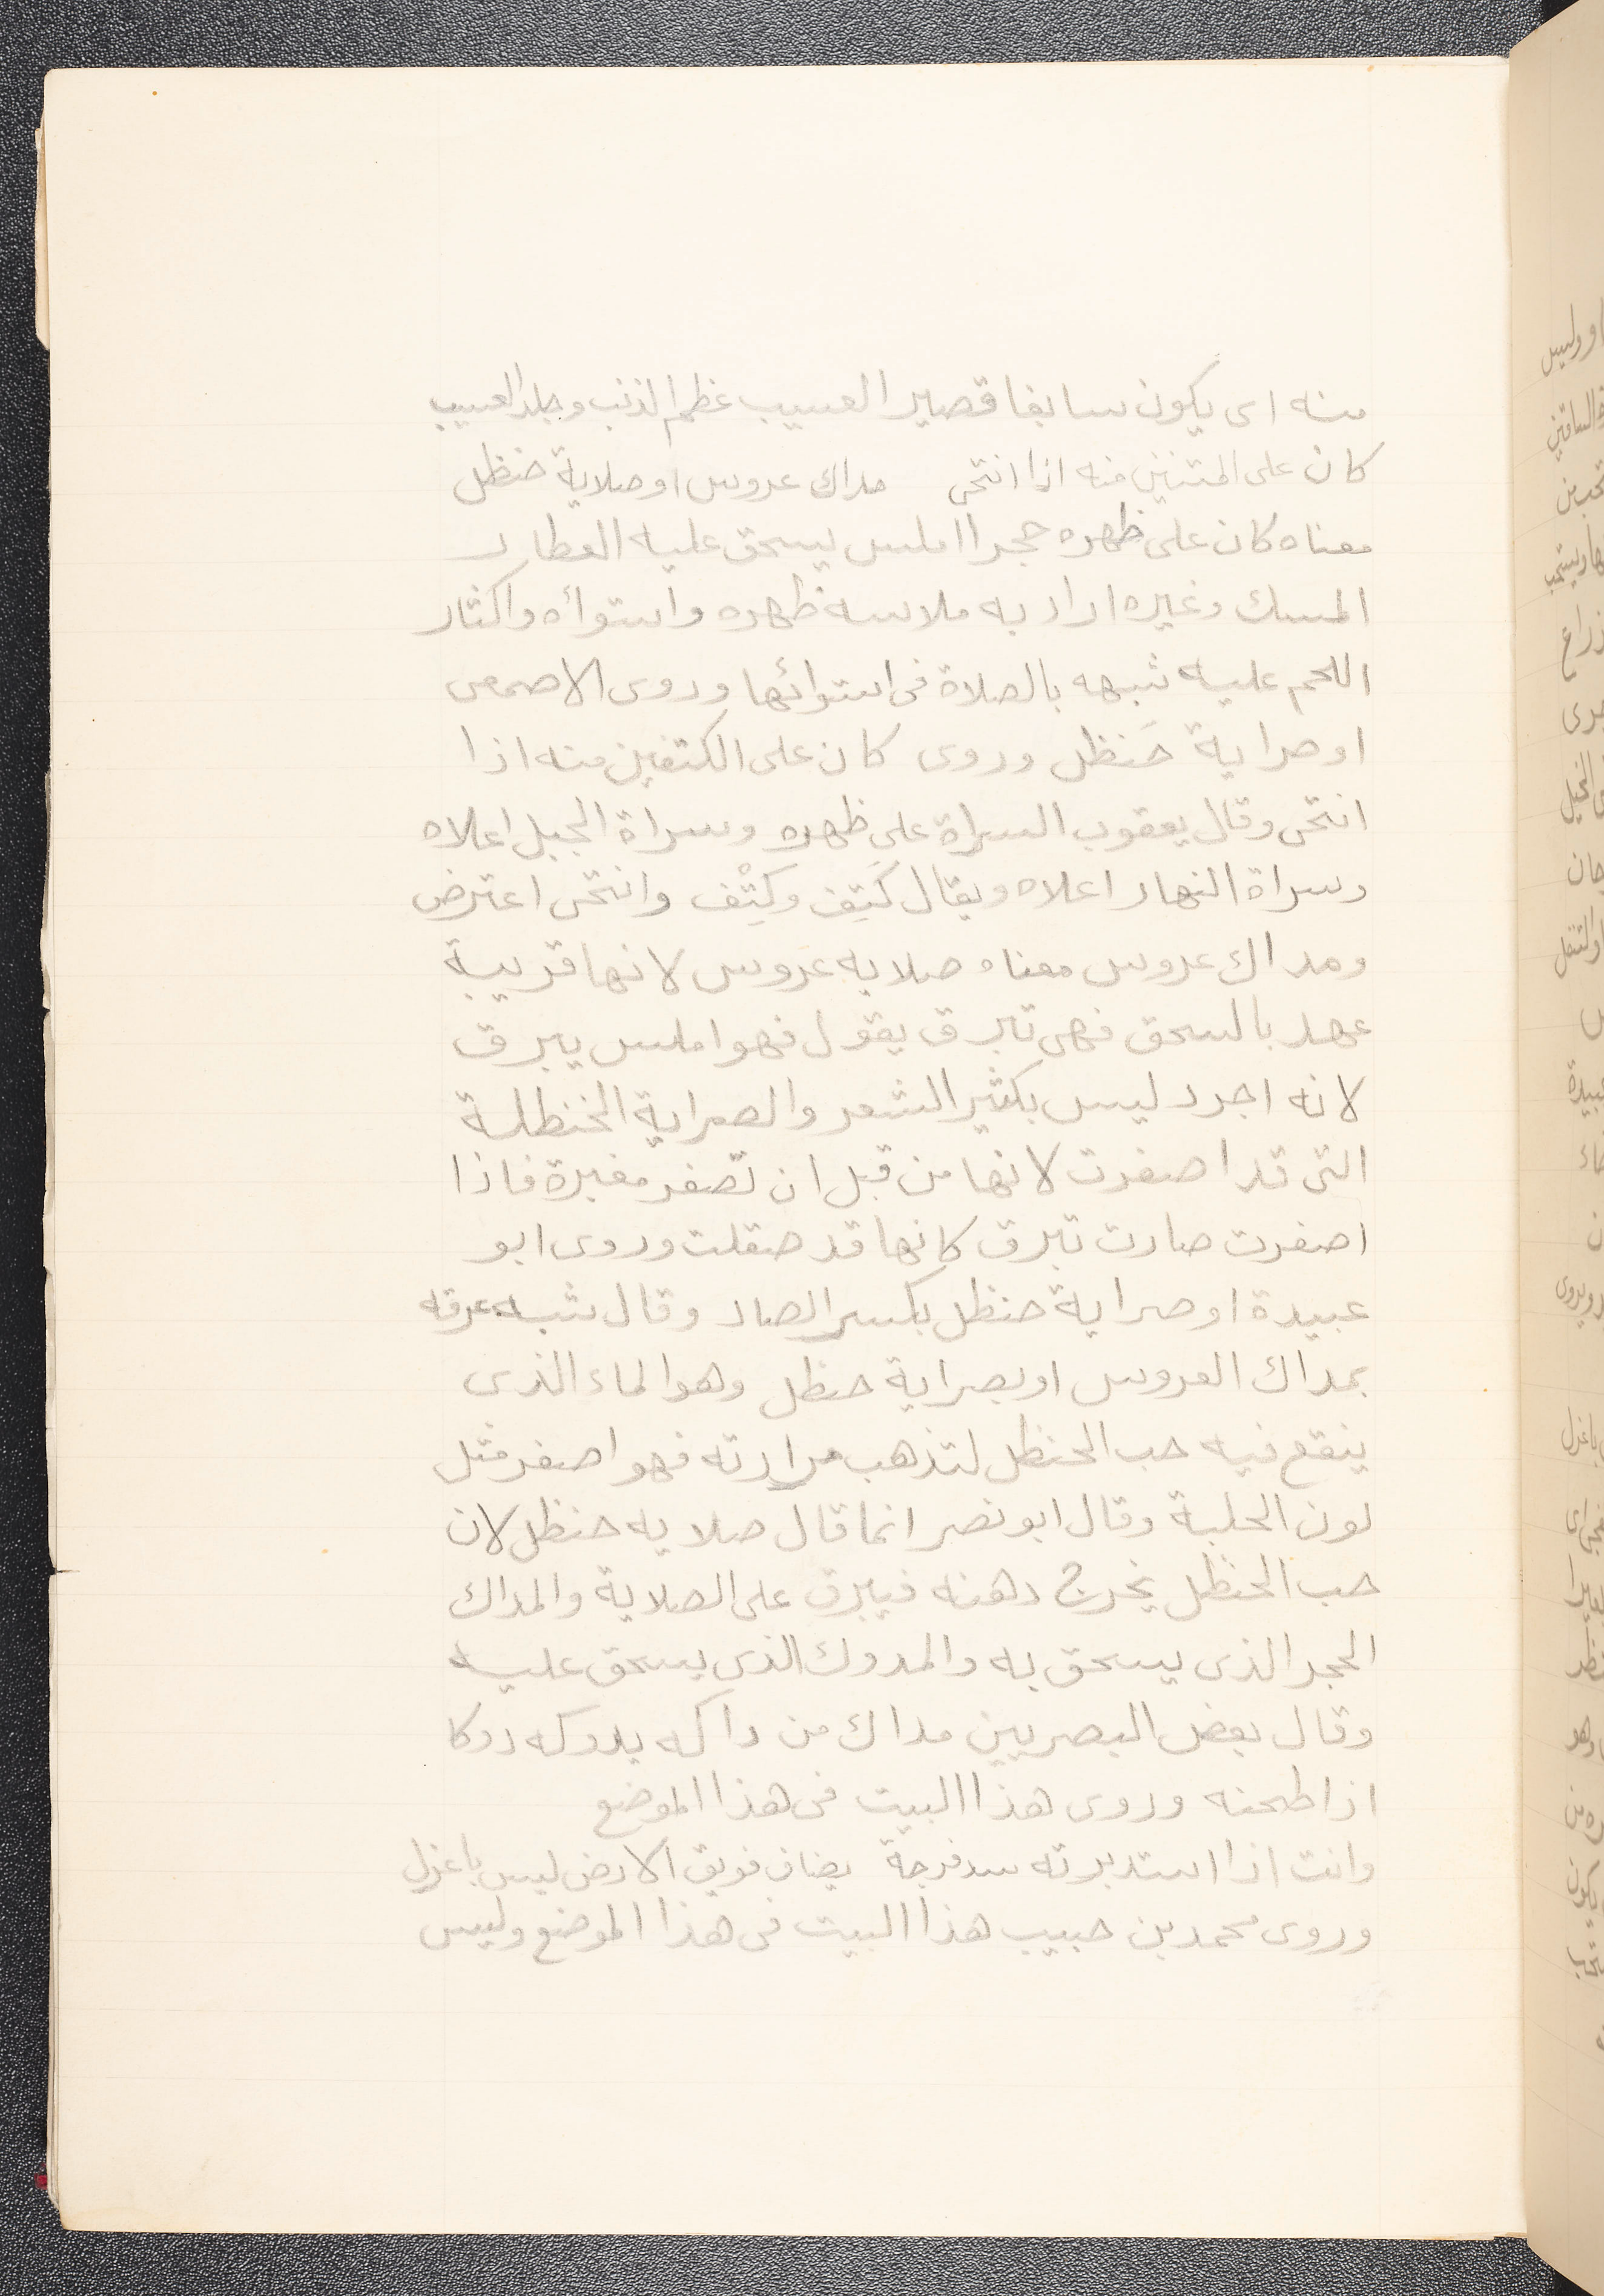 منه اى يكون سابغا قصير العسيب عظم الذنب وجلد العسيب
كان على المتنين منه اذا انتحى مداك عروس او صلاية حنظل
معناه كان على ظهره حجرا املس يسحق عليه العطار
المسك وغيره اراد به ملاسه ظهره واستوائه واكثار
اللحم عليه شبهه بالصلاة فى استوائها وروى الاصمعى
او صراية حَنظل وروى كان على الكتفين منه اذا
انتحى وقال يعقوب السراة على ظهره وسراة الجبل اعلاه
وسراة النهار اعلاه ويقال كَتِف وكِتْف وانتحى اعترض
ومداك عروس معناه صلايه عروس لانها قريبة
عهد بالسحق فهى تبرق يقول فهو املس يبرق
لانه اجرد ليس بكثير الشعر والصراية الخنظلة
التى قد اصفرت لانها من قبل ان تصفر مغبرة فاذا
اصفرت صارت تبرق كانها قد صقلت وروى ابو
عبيدة او صراية حنظل بكسر الصاد وقال شبه عرقه
بمداك العروس او بصراية حنظل وهو الماء الذى
ينقع فيه حب الحنظل لتذهب مرارته فهو اصفر مثل
لون الحلبة وقال ابو نصر انما قال صلايه حنظل لان
حب الحنظل يخرج دهنه فيبرق على الصلاية والمداك
الحجر الذى يسحق به والمدوك الذى يسحق عليه
وقال بعض البصريين مداك من داكه يدوكه دوكا
اذا طحنه وروى هذا البيت فى هذا الموضع
وانت اذا استدبرته سد فرجة بضاف فويق الارض ليس باعزل
وروى محمد بن حبيب هذا البيت فى هذا الموضع وليس